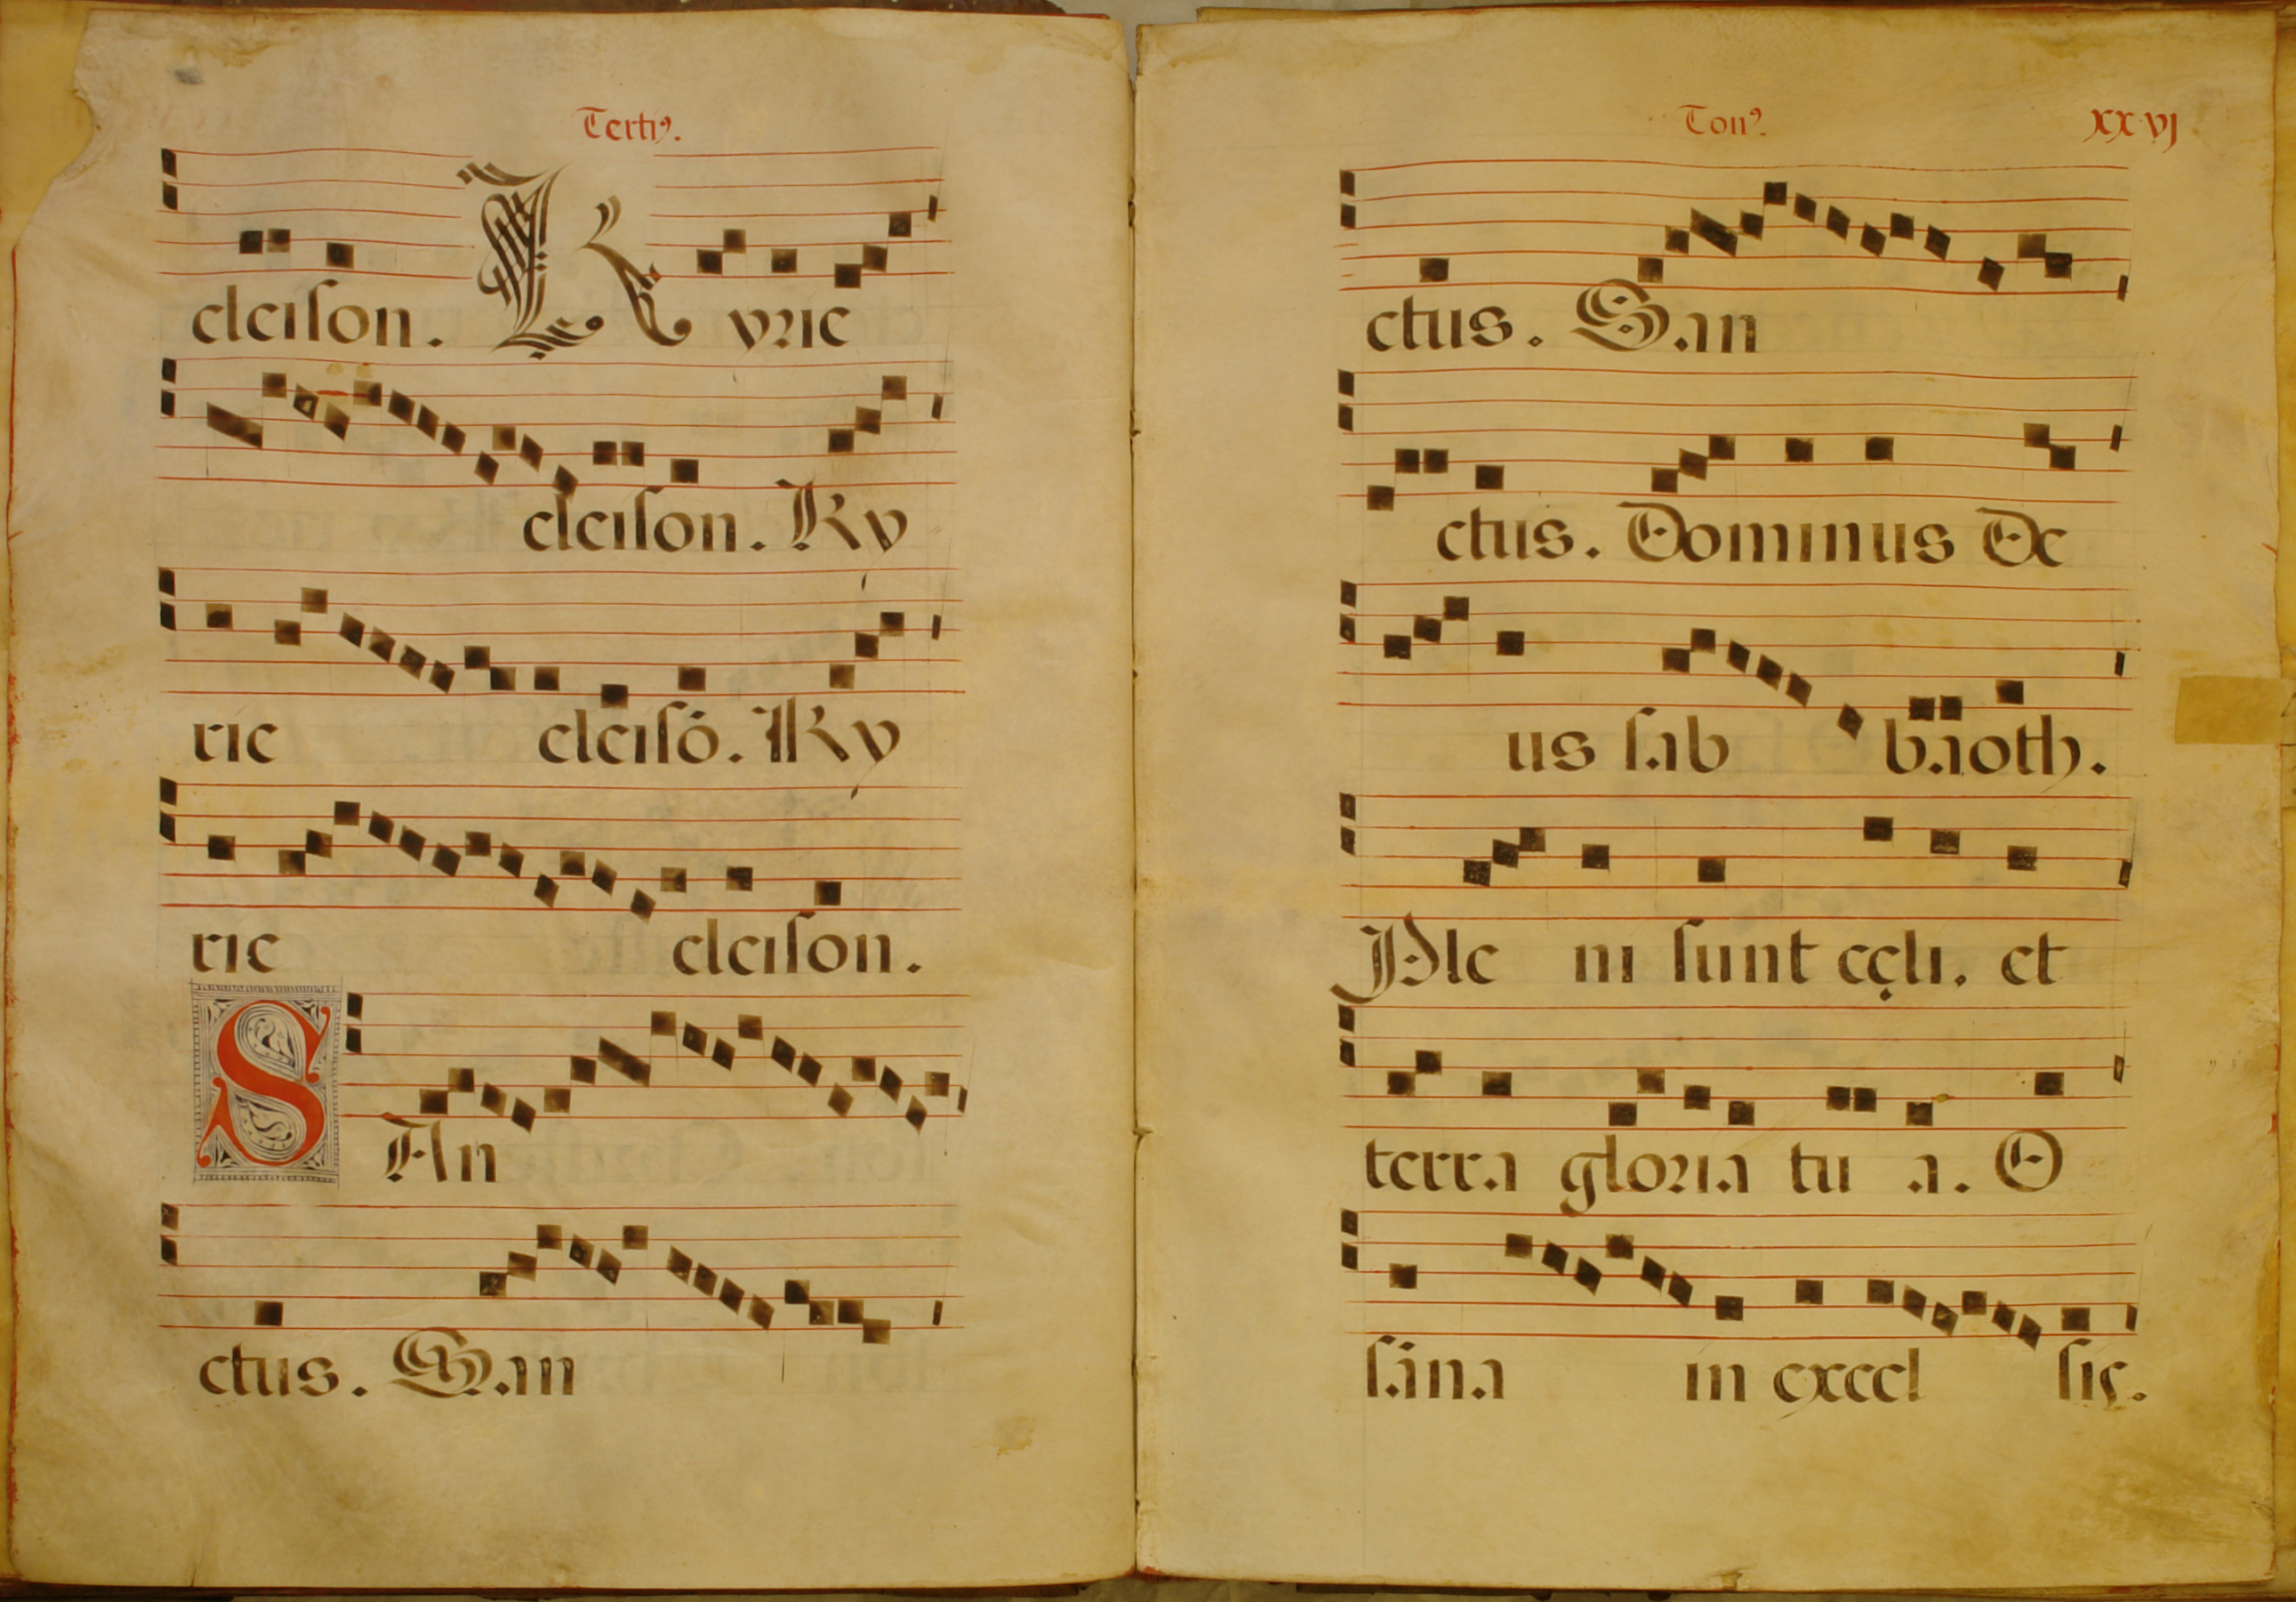 Terti⁹.
eleiſon. Kyrie
eleiſon. Ky
rie eleiſō. Ky
rie eleiſon.
SAn
ctus. San
Ton⁹. xxvj
ctus. San
ctus. Dominus De
us ſab baoth.
Ple ni ſunt cęli. et
terra gloria tu a. O
ſāna in excel ſiς.